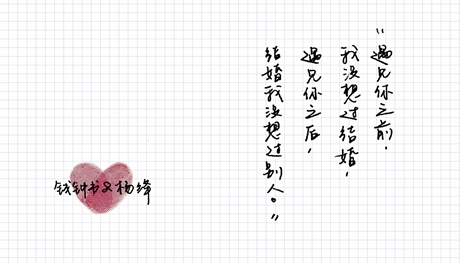 “遇见你之前，
我没想过结婚，
遇见你之后，
结婚我没想过别人。”
钱钟书 杨绛